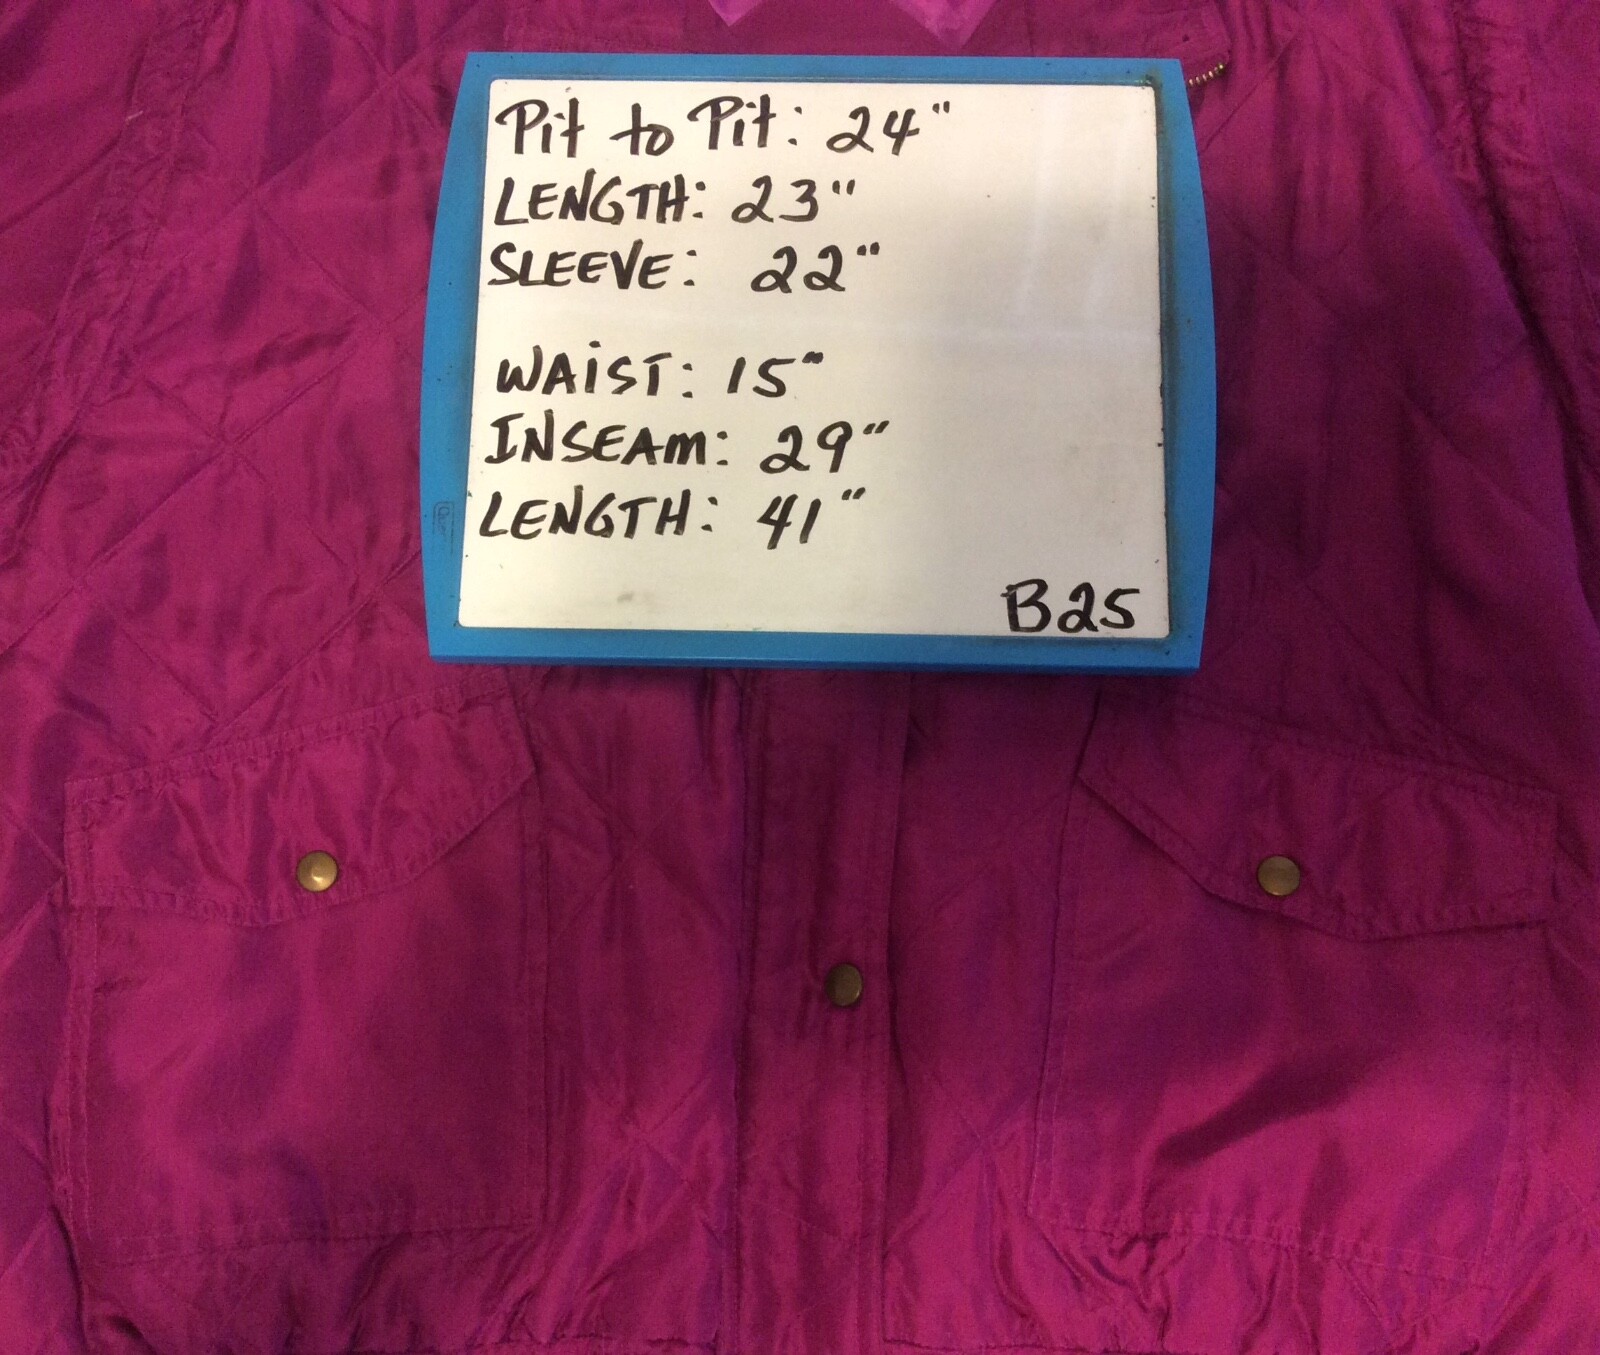 Pit to Pit: 24"
LENGTH: 23"
SLEEVE: 22"
WAIST: 15"
INSEAM: 29"
LENGTH: 41"
B25